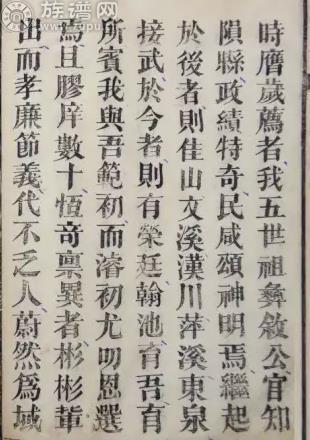 族谱网
時膺歲薦者我五世祖彝敘公官知
隕縣政績特奇民咸頌神明焉繼起
於後者則佳山文溪漢川萍溪東泉
接武於今者則有榮廷翰池育吾育
所賓我與吾範初而濬初尤叨恩選
焉且膠庠數十恆奇禀異者彬彬輩
出而孝廉節義代不乏人蔚然爲域